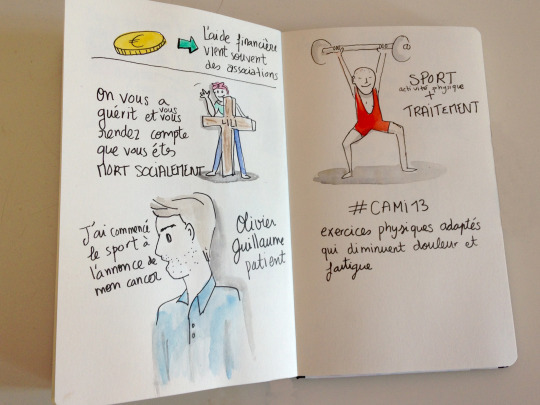 €
L'aide financière
vient souvent
des associations
On vous a
guérit et vous vous
rendez compte
que vous êtes
MORT SOCIALEMENT
LILI
J'ai commencé
le sport à
l'annonce de
mon cancer
Olivier
Guillaume
patient
SPORT
activité physique
+
TRAITEMENT
#CAMI13
exercices physiques adaptés
qui diminuent douleur et
fatigue